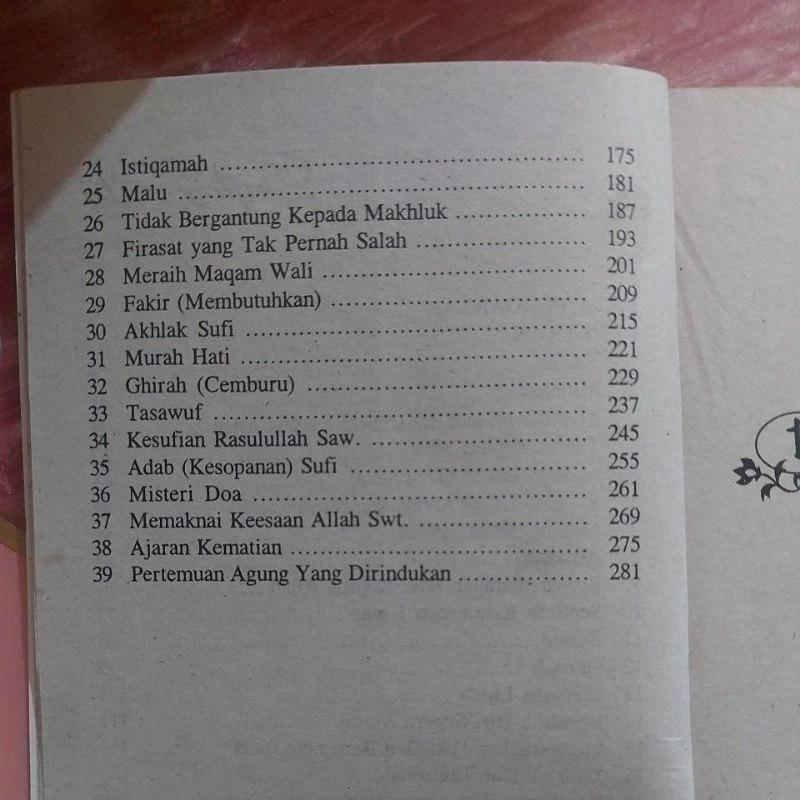 24 Istiqamah ................................................ 175
25 Malu ................................................ 181
26 Tidak Bergantung Kepada Makhluk ................ 187
27 Firasat yang Tak Pernah Salah ..................... 193
28 Meraih Maqam Wali ................................ 201
29 Fakir (Membutuhkan) ............................... 209
30 Akhlak Sufi .......................................... 215
31 Murah Hati .......................................... 221
32 Ghirah (Cemburu) .................................. 229
33 Tasawuf ............................................. 237
34 Kesufian Rasulullah Saw. ........................... 245
35 Adab (Kesopanan) Sufi ............................. 255
36 Misteri Doa ......................................... 261
37 Memaknai Keesaan Allah Swt. .................... 269
38 Ajaran Kematian .................................... 275
39 Pertemuan Agung Yang Dirindukan ............... 281